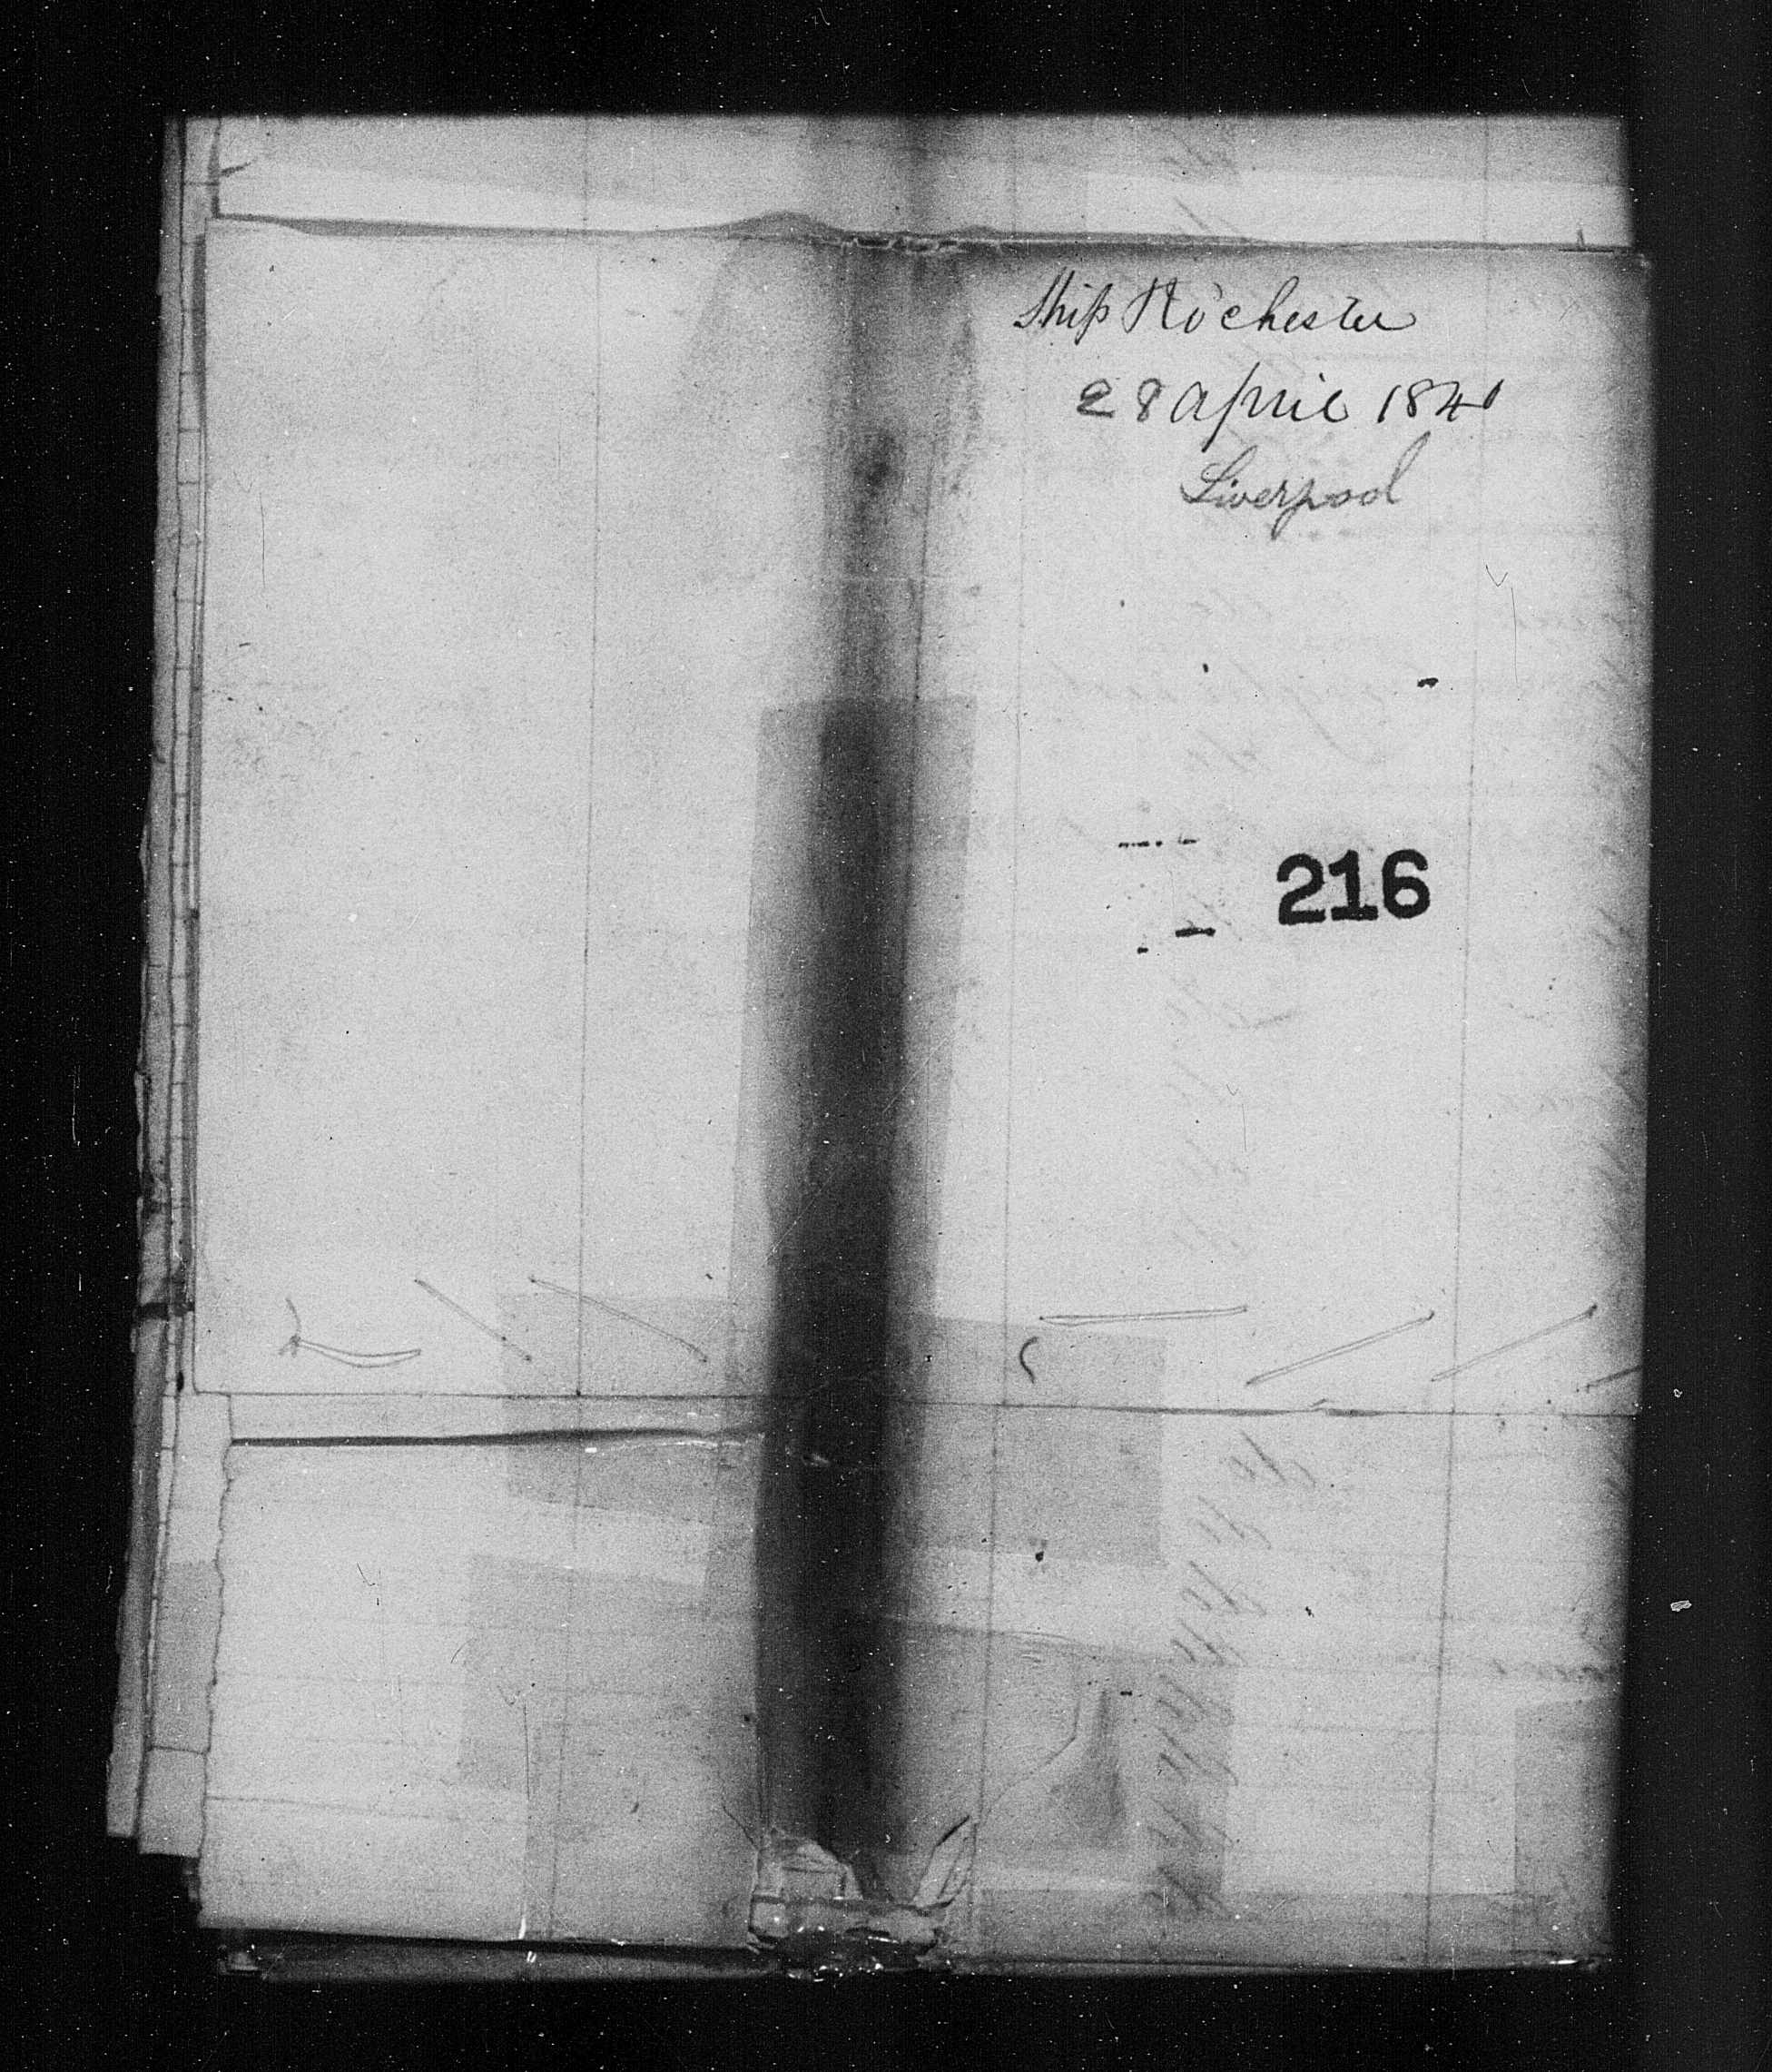 Ship Rochester
28 April 1841
Liverpool
216